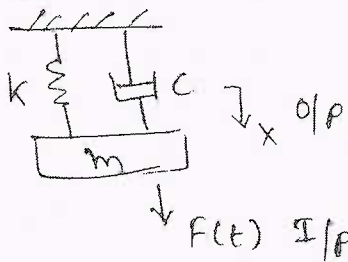 K C
x O/P
m
F(t) I/P